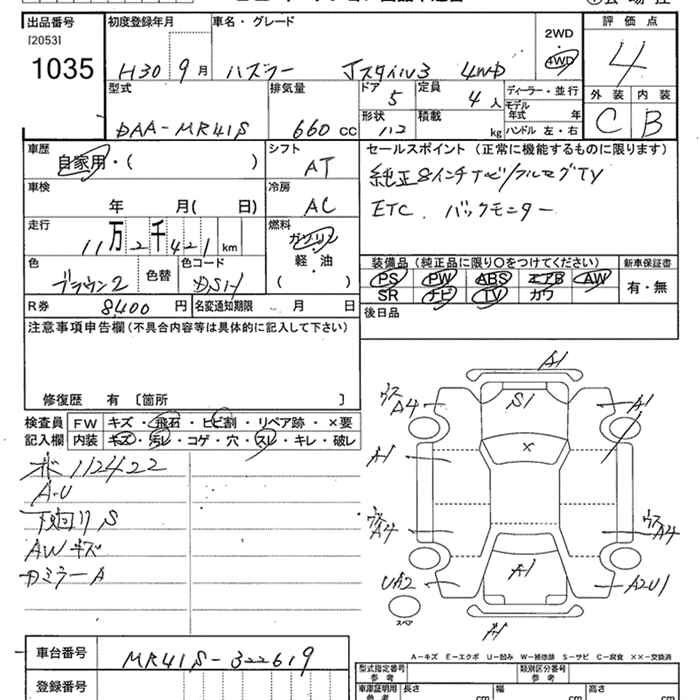 出品番号
[2053]
1035
初度登録年月
H30 9月
車名・グレード
ハスラー Jスタイル3 4WD
2WD
4WD
評価点
4
外装 内装
C B
型式
DAA-MR41S
排気量
660 cc
ドア
5
定員
4人
形状
積載
kg
ディーラー・並行
モデル年式 年
ハンドル 左・右
車歴
自家用・( )
シフト
AT
車検
年 月( 日)
冷房
AC
走行
11万2千421km
燃料
ガソリン
軽・油
( )
色
ブラウン2
色替
色コード
R券 8,400円
名変通知期限 月 日
セールスポイント (正常に機能するものに限ります)
純正8インチナビ/フルセグTV
ETC. バックモニター
装備品 (純正品に限り○をつけてください)
PS PW ABS エアB AW
SR ナビ TV カワ
新車保証書
有・無
後日品
注意事項申告欄(不具合内容等は具体的に記入して下さい)
修復歴 有 [箇所 ]
検査員
記入欄
FW キズ・飛石・ヒビ割・リペア跡・×要
内装 キズ・汚レ・コゲ・穴・スレ・キレ・破レ
112422
A-U
下回り S
AWキズ
ミラーA
A1
ウス
A4
S1
A1
X
A1
ウス
A4
ウス
A4
UA2
A1
A2U1
スペア
A1
A-キズ E-エクボ U-凹み W-補修跡 S-サビ C-腐食 XX-交換済
車台番号
MR41S-322619
登録番号
型式指定番号
参考
類別区分番号
参考
車庫証明用
参考
長さ
cm
幅
cm
高さ
cm